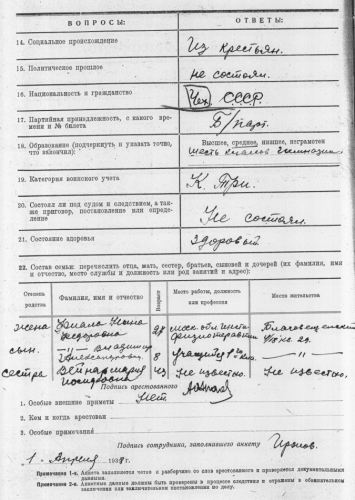 ВОПРОСЫ: ОТВЕТЫ:
14. Социальное происхождение Из крестьян.
15. Политическое прошлое не состоял.
16. Национальность и гражданство Чех, СССР.
17. Партийная принадлежность, с какого времени и № билета Б/парт.
18. Образование (подчеркнуть и указать точно, что закончил): Высшее, среднее, низшее, неграмотен
шесть классов гимназии
19. Категория воинского учета К. Три.
20. Состоял ли под судом и следствием, а также приговор, постановление или определение Не состоял.
21. Состояние здоровья Здоровый.
22. Состав семьи: перечислить отца, мать, сестер, братьев, сыновей и дочерей (их фамилия, имя
и отчество, место службы и должность или род занятий и адрес):
Степень родства Фамилия, имя и отчество Возраст Место работы, должность или профессия Место жительства
жена Нина Федоровна
сын. —„— Владимир Александрович 8 учащийся —„—
сестра Мария Иосифовна 43 Не известно. Не известно.
Подпись арестованного
1. Особые внешние приметы нет
2. Кем и когда арестован
3. Особые примечания
Подпись сотрудника, заполнившего анкету
1. Апреля 1938 г.
Примечание 1-е. Анкета заполняется четко и разборчиво со слов арестованного и проверяется документальными
данными.
Примечание 2-е. Анкетные данные должны быть проверены в процессе следствия и отражены в обвинительном
заключении или заключительном постановлении по делу.